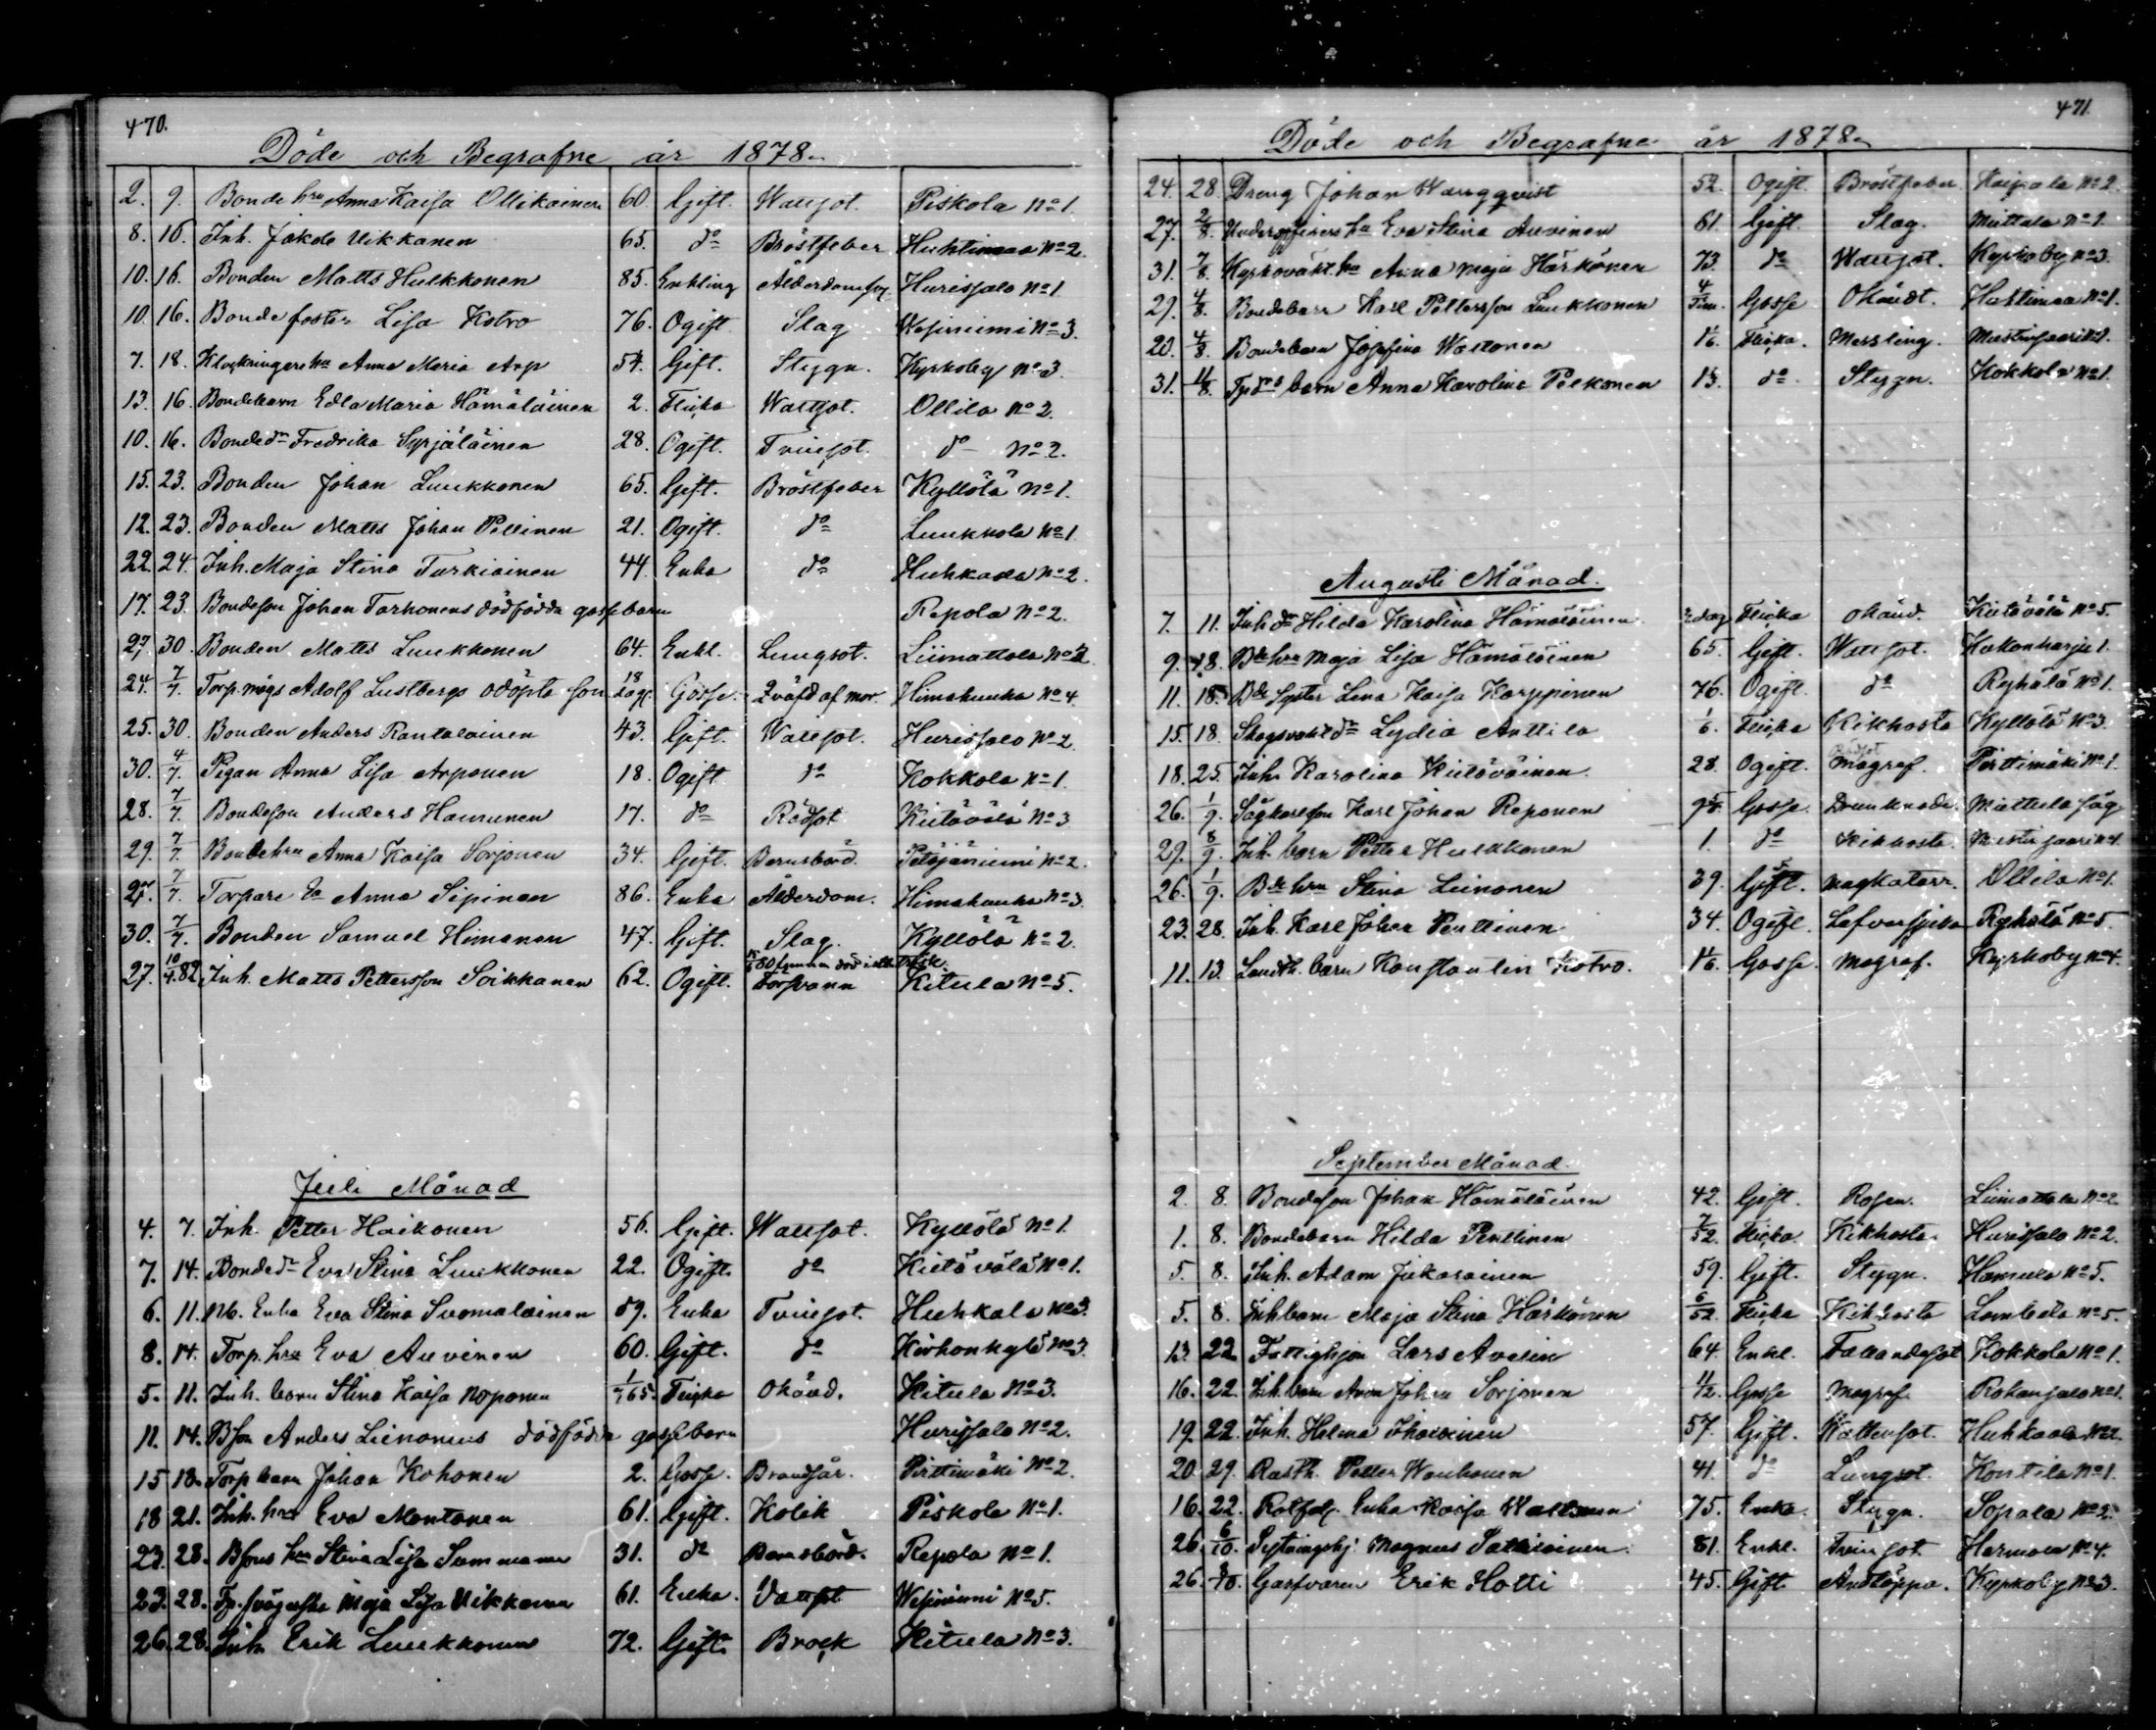 470.
Döde och Begrafne år 1878.
2. 9. Bonde hru Anna Kaisa Ollikainen 60. Gift. Wattsot. Piskola No 1.
8. 16. Inh. Jakob Uikkanen 65. do Bröstfeber Huhtimaa No 2.
10. 16. Bonden Matts Hulkkonen 85. Enkling Ålderdomsv. Hurissalo No 1.
10. 16. Bonde foster Lisa Kotro 76. Ogift. Slag Wesiniemi No 3.
7. 18. Klockringare hu Anna Maria Arp 54. Gift. Stygn. Kyrkoby No 3.
13. 16. Bondebarn Edla Maria Hämäläinen 2. Flicka Wattsot. Ollila No 2.
10. 16. Bonde dr Fredrika Syrjäläinen 28. Ogift. Tvinsot. do No 2.
15. 23. Bonden Johan Luukkonen 65. Gift. Bröstfeber Kyllölä No 1.
12. 23. Bonden Matts Johan Pellinen 21. Ogift. do Luukkola No 1.
22. 24. Inh. Maja Stina Turkiainen 44. Enka do Huhkaala No 2.
17. 23. Bondeson Johan Tarhonens dödfödda gossebarn Repola No 2.
27. 30. Bonden Matts Luukkonen 64. Enkl. Lungsot. Liimattala No 2.
24. 7/7. Torp. mågs Adolf Lustbergs adopte son 18 dag. Gosse. Qväfd af mor. Himahuuka No 4.
25. 30. Bonden Anders Rantalainen 43. Gift. Wattsot. Hurissalo No 2.
30. 4/7. Pigan Anna Lisa Arponen 18. Ogift do Kokkola No 1.
28. 7/7. Bondeson Anders Hamunen 17. do Rödsot Kietävälä No 3
29. 7/7. Bonde hru Anna Kaisa Sorjonen 34. Gift. Barnsbörd. Petäjäniemi No 2.
27. 7/7. Torpare Ea Anna Sipinen 86. Enka Ålderdom. Himahuuka No 3.
30. 7/7. Bonden Samuel Himanen 47. Gift. Slag. Kyllölä No 2.
27. 10/4.82. Inh. Matts Pettersson Soikkanen 62. Ogift. Försvann Kitula No 5.
Juli Månad
4. 7. Inh. Petter Haikonen 56. Gift. Wattsot. Kyllölä No 1.
7. 14. Bonde dr Eva Stina Luukkonen 22. Ogift. do Kietävälä No 1.
6. 11. Nb. Enka Eva Stina Suomalainen 59. Enka Tvinsot. Huhkala No 3.
8. 14. Torp. hru Eva Auvinen 60. Gift. do Kirkonkylä No 3.
5. 11. Inh. barn Stina Kaisa Roponen 1/365. Flicka Okänd. Kitula No 3.
11. 14. Bson Anders Lienonens dödfödda gossebarn Hurissalo No 2.
15. 18. Torp barn Johan Kohonen 2. Gosse. Brandsår. Pirttimäki No 2.
18. 21. Inh. hru Eva Montonen 61. Gift. Kolik Piskola No 1.
23. 28. Bsons hru Stina Lisa Summanen 31. do Barnsbörd. Repola No 1.
23. 28. Tp. Maja Lisa Uikkanen 61. Enka. Vattsot Wesiniemi No 5.
26. 28. Inh. Erik Luukkonen 72. Gift. Brock Kitula No 3.
471.
Döde och Begrafne år 1878.
24. 28. Dreng Johan Wangqvist 52. Ogift. Bröstfeber. Kaipala No 2.
27. 2/8. Underofficers hu Eva Stina Auvinen 61. Gift. Slag. Miettula No 1.
31. 7/8. Kyrkovakt. hu Anna Maja Härkönen 73. do Wattsot. Kyrkoby No 3.
29. 4/8. Bondebarn Karl Pettersson Luukkonen 4 Tim. Gosse Okändt. Huhtimaa No 1.
20. 4/8. Bondebarn Josefina Wastonen Flicka. Messling.
31. 11/8. barn Anna Karolina Pelkonen do Stygn. Kokkola No 1.
Augusti Månad.
7. 11. Inh dr Hilda Karolina Hämäläinen 2 dag Flicka okänd. Kietävälä No 5.
9. 18. Bde hru Maja Lisa Hämäläinen 65. Gift. Wattsot. Kakonharju 1.
11. 18. Bde Syster Lena Kaisa Karppinen 76. Ogift. do Ryhälä No 1.
15. 18. Skogsvakt dr Lydia Anttila 1/6. Flicka Kikhosta Kyllölä No 3.
18. 25. Inh. Karolina Kietäväinen. 28. Ogift. Rödsot Magref. Pirttimäki No 1.
26. 1/9. Sågkarlsson Karl Johan Reponen Gosse. Drunknade. Miettula såg
29. 8/9. Inh. barn Petter Hulkkonen 1. do Kikhosta.
26. 1/9. Bde hru Stina Leinonen 39. Gift. Magkatarr. Ollila No 1.
23. 28. Inh. Karl Johan Penttinen 34. Ogift. Lefversjuka Ryhälä No 5.
11. 13. barn Konstantin Kotro. Gosse. Magref. Kyrkoby No 4.
September Månad.
2. 8. Bondeson Johan Hämäläinen 42. Gift. Rosen. Liimattala No 2.
1. 8. Bondebarn Hilda Penttinen 7/52 Flicka. Kikhosta. Hurissalo No 2.
5. 8. Inh. Adam Jukarainen 59. Gift. Stygn. Hamula No 5.
5. 8. Inh barn Maja Stina Härkönen 6/52. Flicka Kikhosta Lambila No 5.
13. 22. Fattighjon Lars Avelin 64. Enkl. Fallandesot Kokkola No 1.
16. 22. Inh. barn Aron Johan Sorjonen 1/2. Gosse Magref. Rokansalo No 1.
19. 22. Inh. Helena Ihalainen 57. Gift. Wattensot. Huhkaala No 2.
20. 29. Rusth. Petter Wauhonen 41. do Lungsot. Kontila No 1.
16. 22. Enka Kaisa 75. Enka. Stygn. Sopala No 2.
26. 6/10. Magnus 81. Enkl. Tvinsot. No 4.
26. Garfvaren Erik Hotti 45. Gift. Andtäppa. Kyrkoby No 3.